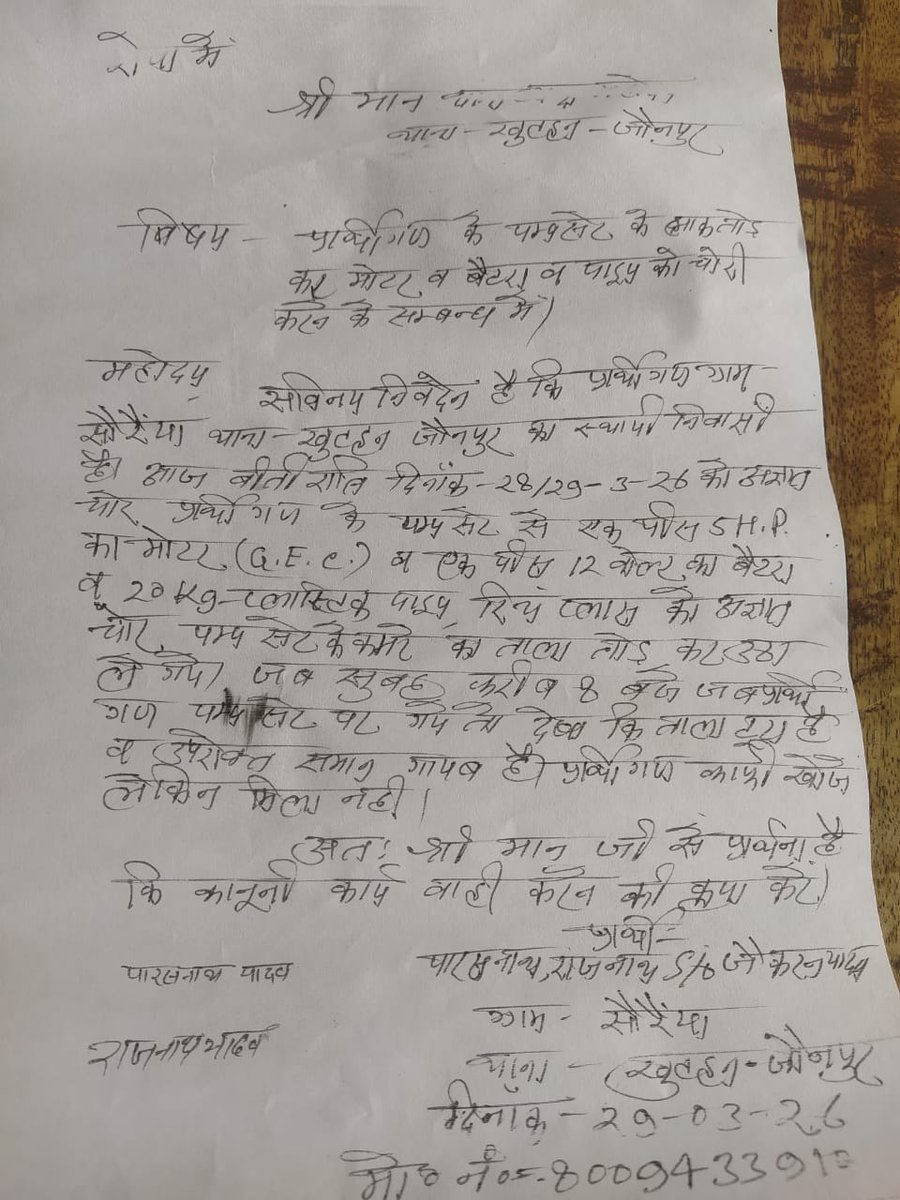 सेवा में
श्री मान थाना
थाना - खुटहन - जौनपुर
विषय - प्रार्थीगण के पम्पसेट के लाक तोड़
कर मोटर व बैटरा व पाइप को चोरी
करने के सम्बन्ध में।
महोदय
सविनय निवेदन है कि प्रार्थीगण ग्राम -
सौरैंया थाना - खुटहन जौनपुर का स्थायी निवासी
है। आज बीती रात्रि दिनाँक - 28/29-3-26 को अज्ञात
चोर प्रार्थीगण के पम्प सेट से एक पीस 5 H.P.
का मोटर (G.E.C.) व एक पीस 12 वोल्ट का बैटरा
व 20 kg - प्लास्टिक पाइप को अज्ञात
चोर पम्प सेट के कमरे का ताला तोड़ कर उठा
ले गये। जब सुबह करीब 8 बजे जब प्रार्थी
गण पम्प सेट पर गये तो देखा कि ताला टूटा है
व उपरोक्त समान गायब है। प्रार्थीगण काफी खोजे
लेकिन मिला नही।
अतः श्री मान जी से प्रार्थना है
कि कानूनी कार्य वाही करने की कृपा करें।
प्रार्थी -
पारसनाथ यादव पारसनाथ, राजनाथ S/o जै करन यादव
ग्राम - सौरैंया
राजनाथ यादव
थाना - खुटहन - जौनपुर
दिनाँक - 29-03-26
मो० नं० - 8009433910